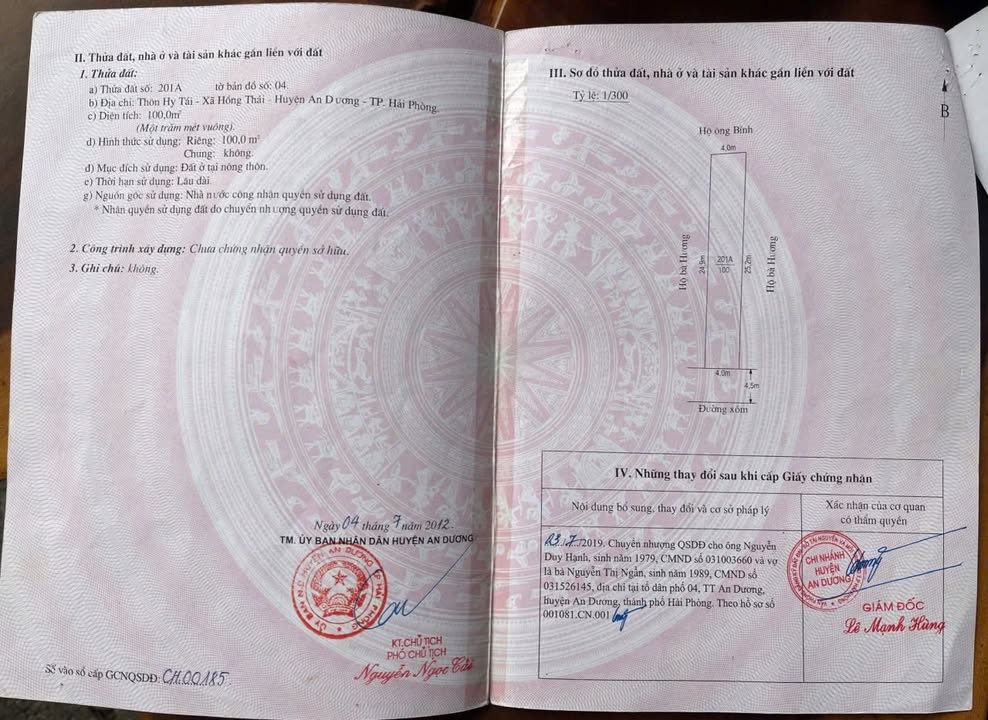 II. Thửa đất, nhà ở và tài sản khác gắn liền với đất
1. Thửa đất:
a) Thửa đất số: 201A tờ bản đồ số 04.
b) Địa chỉ: Thôn Hy Tái - Xã Hồng Thái - Huyện An Dương - TP. Hải Phòng.
c) Diện tích: 100,0m²
(Một trăm mét vuông).
d) Hình thức sử dụng: Riêng: 100,0 m²
Chung: không.
đ) Mục đích sử dụng: Đất ở tại nông thôn.
e) Thời hạn sử dụng: Lâu dài.
g) Nguồn gốc sử dụng: Nhà nước công nhận quyền sử dụng đất.
* Nhận quyền sử dụng đất do chuyển nhượng quyền sử dụng đất.
2. Công trình xây dựng: Chưa chứng nhận quyền sở hữu.
3. Ghi chú: không.
Ngày 04 tháng 7 năm 2012.
TM. ỦY BAN NHÂN DÂN HUYỆN AN DƯƠNG
ỦY BAN N.D HUYỆN AN DƯƠNG T.P HẢI PHÒNG
KT.CHỦ TỊCH
PHÓ CHỦ TỊCH
Nguyễn Ngọc
Số vào sổ cấp GCNQSDĐ: CH.00185
III. Sơ đồ thửa đất, nhà ở và tài sản khác gắn liền với đất
Tỷ lệ: 1/300
B
Hộ ông Bính
4.0m
Hộ bà Hương
24.9m
201A
100
25.2m
Hộ bà Hương
4.0m
4,5m
Đường xóm
IV. Những thay đổi sau khi cấp Giấy chứng nhận
Nội dung bổ sung, thay đổi và cơ sở pháp lý
Xác nhận của cơ quan
có thẩm quyền
23/7/2019. Chuyển nhượng QSDĐ cho ông Nguyễn
Duy Hạnh, sinh năm 1979, CMND số 031003660 và vợ
là bà Nguyễn Thị Ngần, sinh năm 1989, CMND số
031526145, địa chỉ tại tổ dân phố 04, TT An Dương,
huyện An Dương, thành phố Hải Phòng. Theo hồ sơ số
001081.CN.001
CHI NHÁNH
HUYỆN
AN DƯƠNG
GIÁM ĐỐC
Lê Mạnh Hùng